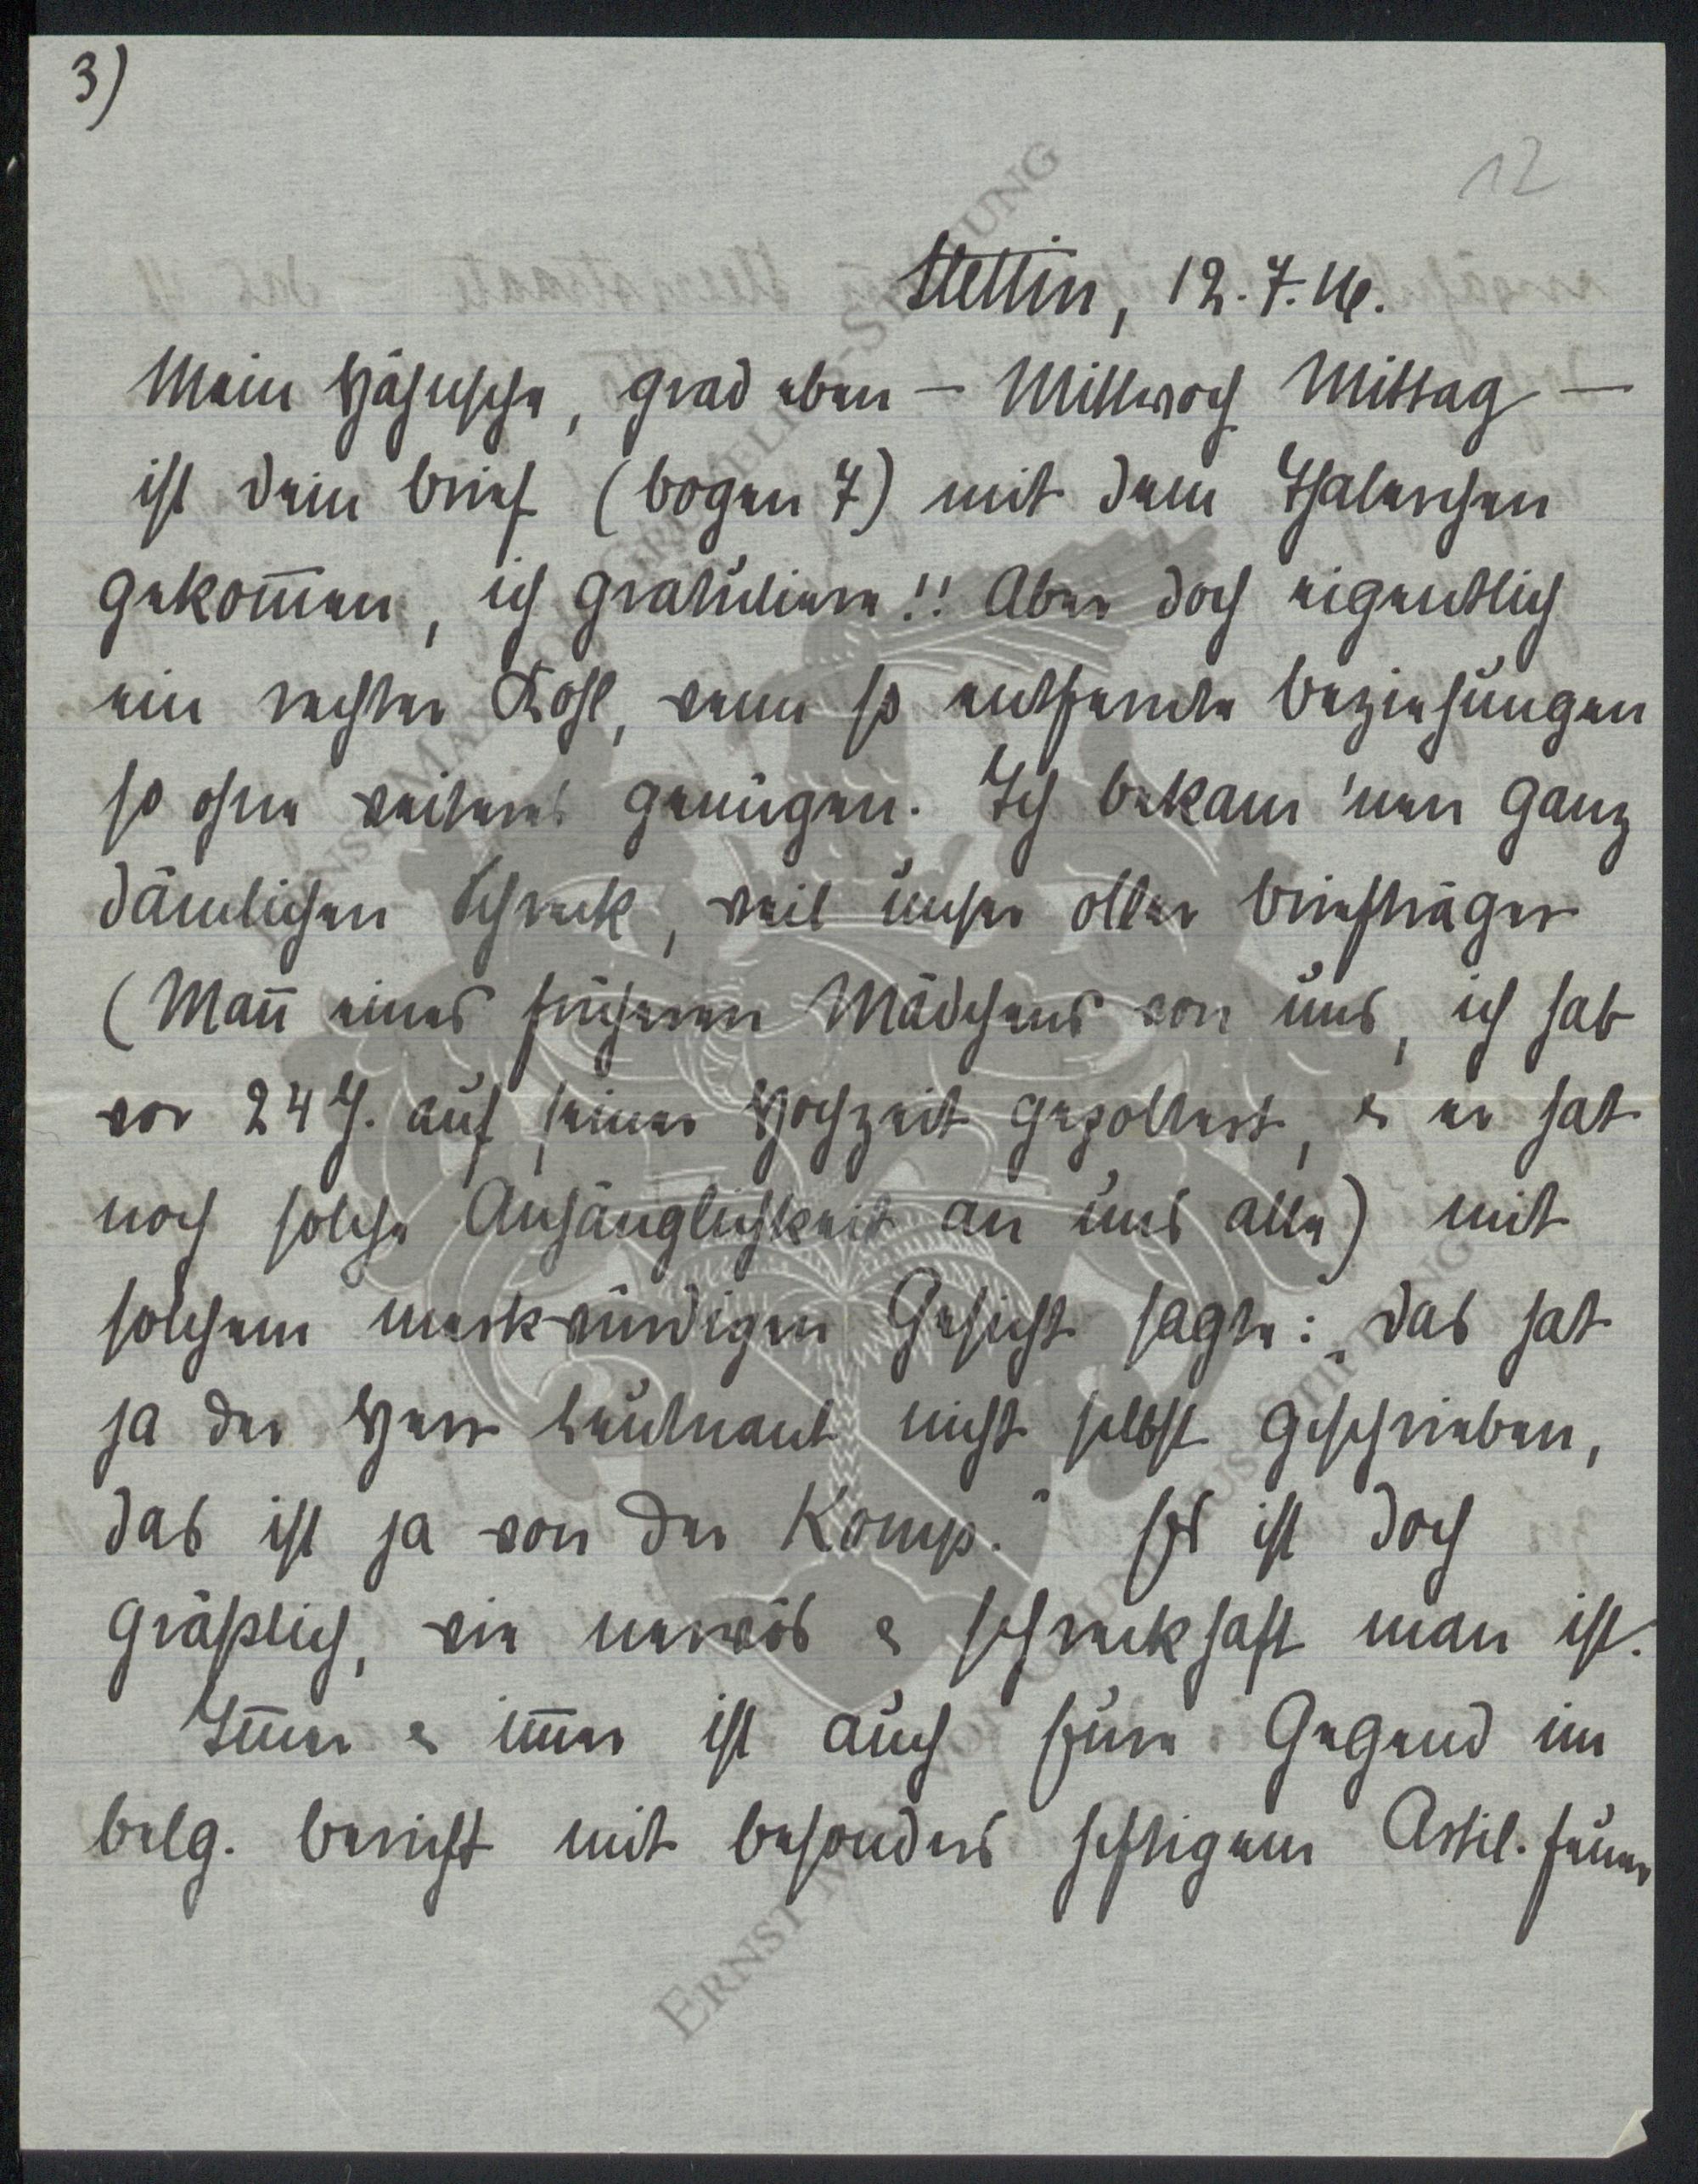 3)
12
Stettin, 12.7.16.
Mein Hähnche, grad eben – Mittwoch Mittag –
ist dein Brief (Bogen 7) mit dem
gekom̅en, ich gratuliere!! Aber doch eigentlich
ein rechter Kohl, wenn so entfernte Beziehungen
so ohne weiteres genügen. Ich bekam 'nen ganz
dämlichen Schreck, weil unser oller Briefträger
(Man̅ eines früheren Mädchens von uns, ich hab
vor 24 J. auf seiner Hochzeit gepoltert, & er hat
noch solche Anhänglichkeit an uns alle) mit
solchem merkwürdigen Gesicht sagte: „das hat
ja der Herr Leutnant nicht selbst geschrieben,
das ist ja von der Komp.“ Es ist doch
gräßlich, wie nervös & schreckhaft man ist.
Im̅er & im̅er ist auch Eure Gegend im
belg. Bericht mit besonders heftigem Artil.feuer
ERNST MAX VON GRUNELIUS-STIFTUNG
ERNST MAX VON GRUNELIUS-STIFTUNG